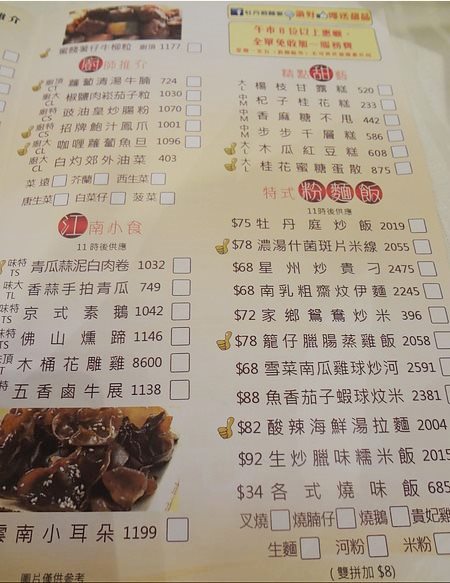 推介
蜜糖薯仔牛柳粒 廚頂 1177
廚師推介
廚頂 CT 蘿蔔清湯牛腩 724
廚大 CL 椒鹽肉崧茄子粒 1030
廚特 CS 豉油皇炒腸粉 1070
廚特 CS 招牌鮑汁鳳爪 1001
廚大 CL 咖喱蘿蔔魚旦 1096
廚大 CL 白灼郊外油菜 403
菜遠 芥蘭 西生菜
唐生菜 白菜仔 菠菜
江南小食
11時後供應
味特 TS 青瓜蒜泥白肉卷 1032
味大 TL 香蒜手拍青瓜 749
味特 TS 京式素鵝 1042
味特 TS 佛山燻蹄 1146
頂 木桶花雕雞 8600
特 五香鹵牛展 1138
雲南小耳朵 1199
圖片僅供參考
牡丹 讚好 送甜品
午市8位以上惠顧,
全單免收加一服務費
精點甜飯
楊枝甘露糕 520
中M 杞子桂花糕 233
中M 香麻糖不甩 442
中M 步步千層糕 586
大L 木瓜紅豆糕 608
大L 桂花蜜糖蛋散 875
特式粉麵飯
11時後供應
$75 牡丹庭炒飯 2019
$78 濃湯什菌斑片米線 2055
$68 星州炒貴刁 2475
$68 南乳粗齋炆伊麵 2245
$72 家鄉鴛鴦炒米 396
$78 籠仔臘腸蒸雞飯 2058
$68 雪菜南瓜雞球炒河 2591
$88 魚香茄子蝦球炆米 2381
$82 酸辣海鮮湯拉麵 2004
$92 生炒臘味糯米飯 2015
$34 各式燒味飯 685
叉燒 燒腩仔 燒鵝 貴妃雞
生麵 河粉 米粉
(雙拼加 $8)